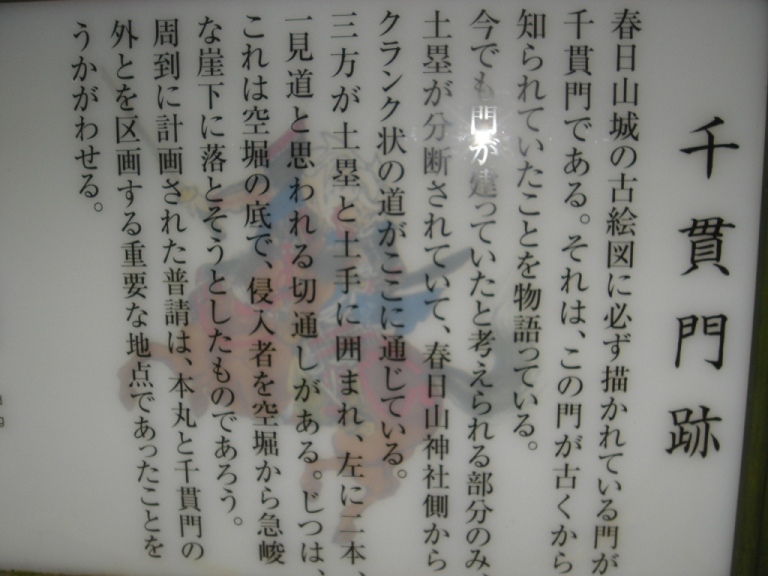 千貫門跡
春日山城の古絵図に必ず描かれている門が
千貫門である。それは、この門が古くから
知られていたことを物語っている。
今でも門が建っていたと考えられる部分のみ、
土塁が分断されていて、春日山神社側から
クランク状の道がここに通じている。
三方が土塁と土手に囲まれ、左に二本、
一見道と思われる切通しがある。じつは、
これは空堀の底で、侵入者を空堀から急峻
な崖下に落とそうとしたものであろう。
周到に計画された普請は、本丸と千貫門の
外とを区画する重要な地点であったことを
うかがわせる。